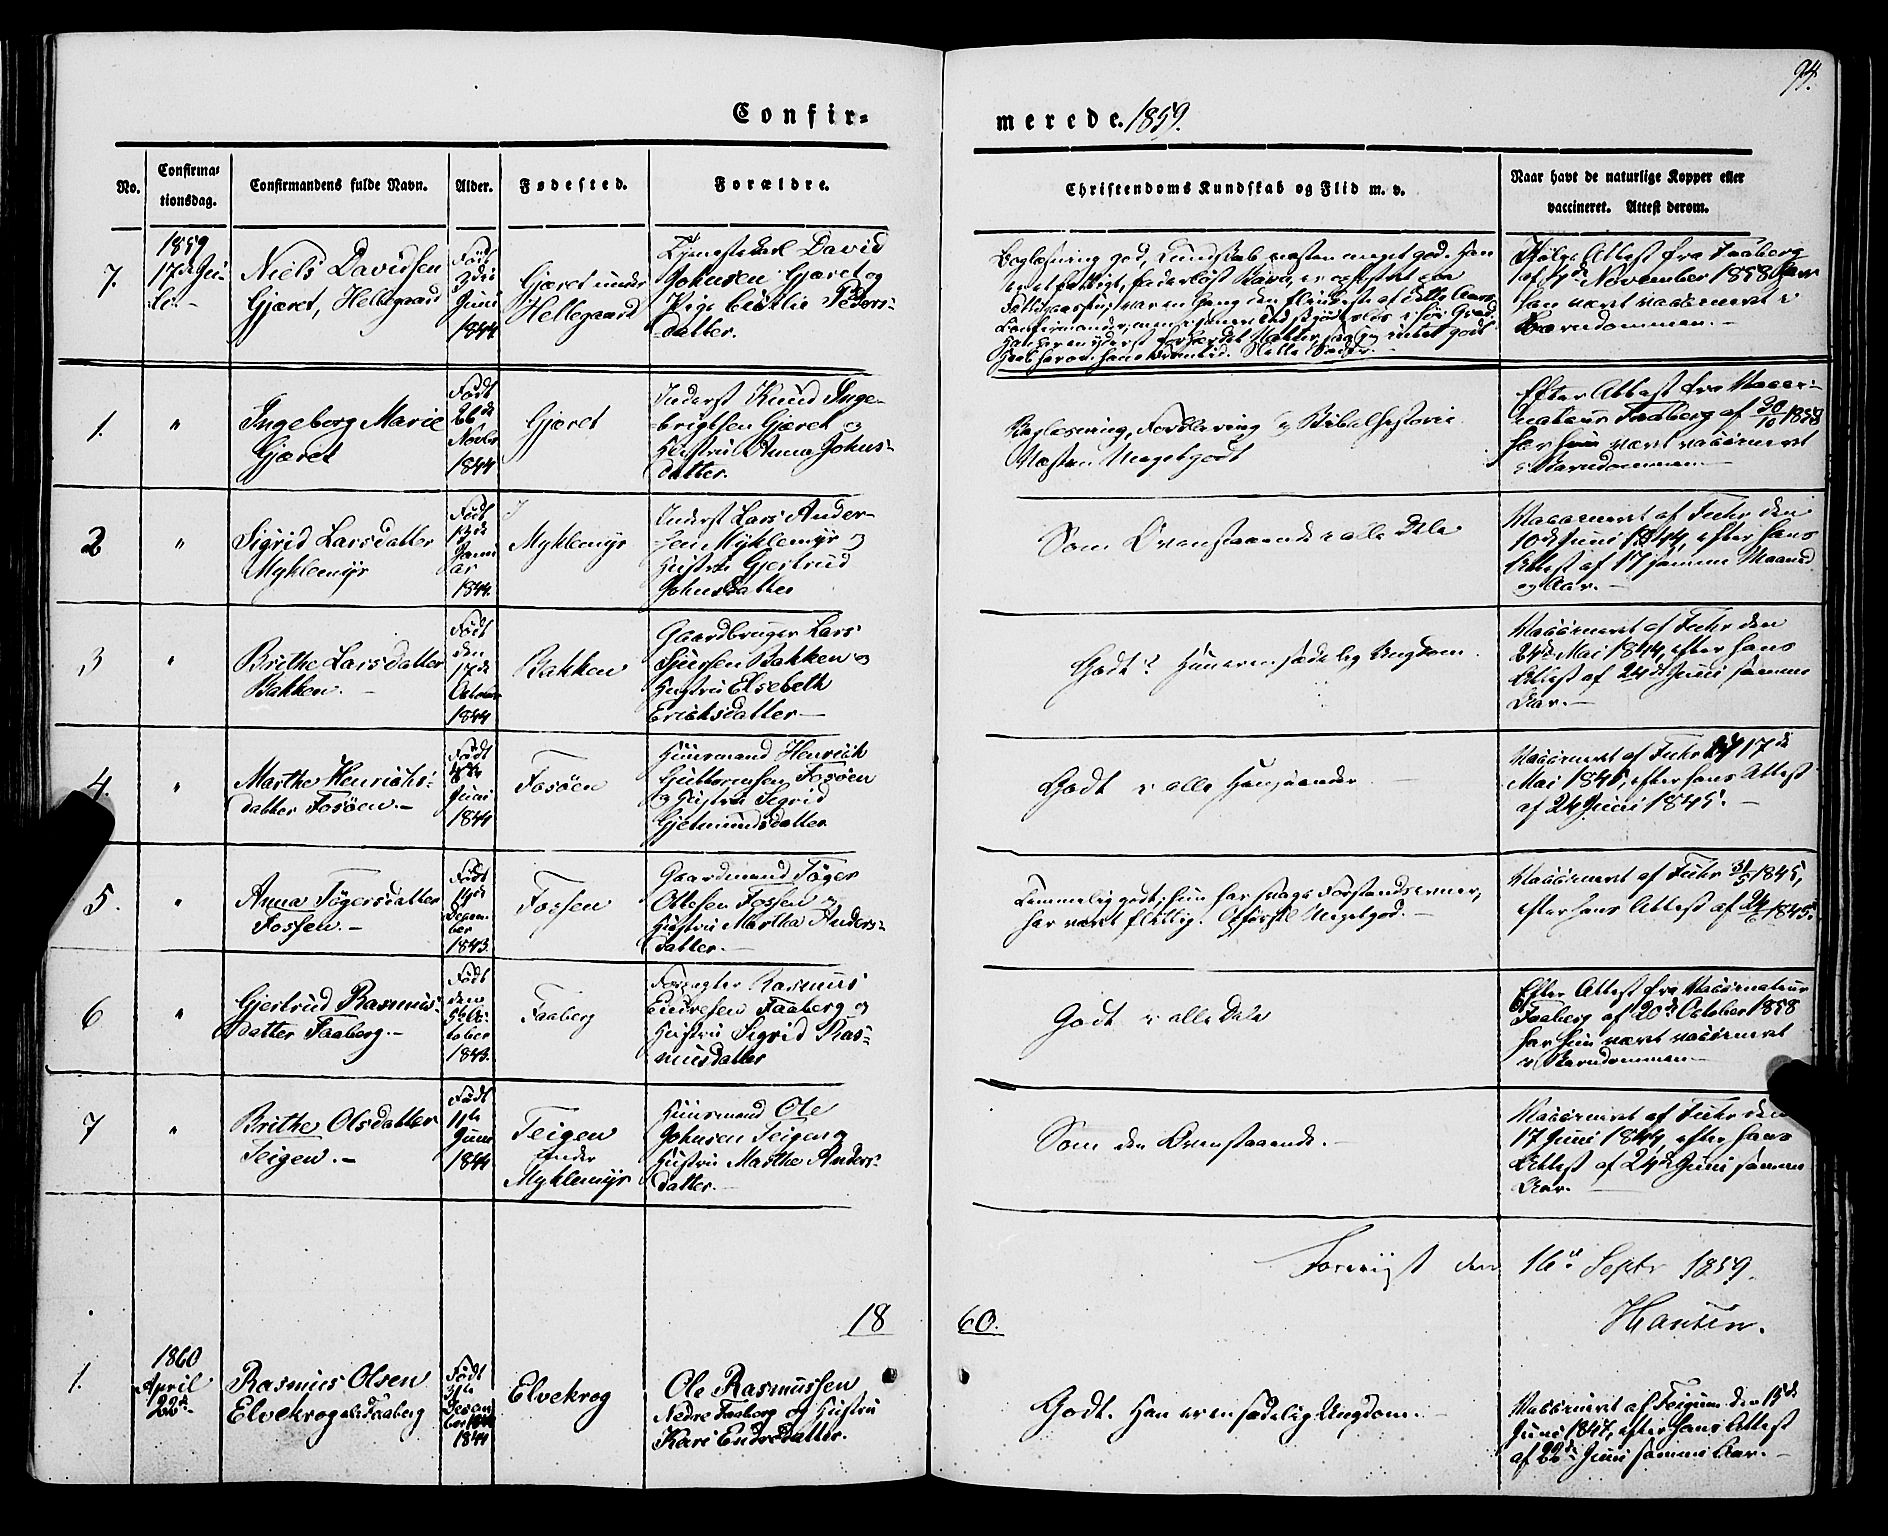 94.
Confir-
merede. 1859.
No.
Confirma-
tionsdag.
Confirmandens fulde Navn.
Alder.
Fødested.
Forældre.
Christendoms Kundskab og Flid m. v.
Naar havt de naturlige Kopper eller
vaccineret. Attest derom.
7.
1859
17de Ju-
li.-
Niels Davidsen
Gjæret, Hellegaard
Født
3die
Juni
1844
Gjæret under
Hellegaard
Tjenestekarl David
Johnsen Gjæret og
Pige Cicilie Peders-
datter.
Boglæsning god, Kundskab næsten meget god. Han
Ifølge Attest fra Faaberg
af 4de November 1858 har
han været vaccineret i
Barndommen.-
1.
"
Ingeborg Marie
Gjæret
Født
26de
Novbr
1844
Gjæret
Inderst Knud Inge-
brigtsen Gjæret og
Hustru Anna Johns-
datter.
Boglæsning, Forklaring og Bibelhistorie
Næsten Megetgodt
Efter Attest fra Vacci-
nateur Faaberg af 30/10 1858
har hun været vaccineret
i Barndommen
2
"
Sigrid Larsdatter
Myklemyr
Født
13de
Janu
ar
1844.
Myklemyr
Inderst Lars Ander-
sen Myklemyr og
Hustru Gjertrud
Johnsdatter
Som Ovenstaaende i alle Dele
Vaccineret af Fuhr den
10de Juni 1844, efter hans
Attest af 17 samme Maaned
og Aar.-
3
"
Brithe Larsdatter
Bakken.-
Født
den
17de
1844
Bakken
Gaardbruger Lars
Sjursen Bakken og
Hustru Elsebeth
Erichsdatter-
Godt. Hun er en sædelig Ungdom.
Vaccineret af Fuhr den
24de Mai 1844, efter hans
Attest af 24de Juni samme
Aar.-
4.
"
Marthe Henrichs-
datter Fosøen.-
Født
Juni
1844
Fosøen
Huusmand Henrich
Guttormsen Fosøen
og Hustru Sigrid
Gjetmundsdatter
Godt i alle Henseender
Vaccineret af Fuhr 17de
Mai 1845, efter hans Attest
af 24 Juni 1845.-
5.
"
Anna Tøgersdatter
Fossen.-
Født
14de
Decem-
ber
1843.
Fossen
Gaardmand Tøger
Ottesen Fossen og
Hustru Martha Anders-
datter.-
Temmelig godt; hun har svage Forstandsevner,
har været flittig. Opførsel Megetgod.-
Vaccineret af Fuhr 31/5 1845,
efter hans Attest af 24/6 1845.
6
"
Gjertrud Rasmus-
datter Faaberg.-
Født
den
5te Oc-
tober
1843.
Faaberg
Forpagter Rasmus
Endresen Faaberg og
Hustru Sigrid Ras-
musdatter
Godt i alle Dele
Efter Attest fra Vaccinateur
Faaberg af 20de October 1858
har hun været vaccineret
i Barndommen
7
"
Brithe Olsdatter
Teigen.-
Født
11te
Juni
1844
Teigen
under
Myklemyr
Huusmand Ole
Johnsen Teigen og
Hustru Marthe Anders-
datter.
Som den Ovenstaaende.-
Vaccineret af Fuhr den
17 Juni 1844, efter hans
Attest af 24de Juni samme
Aar.
Foreviist den 16de Septr 1859.
Hansen.
18
60.
1.
1860
April
22de
Rasmus Olsen
Elvekrog Faaberg
Født
31te
Decem-
ber
1844
Elvekrog
Ole Rasmussen
Nedre Faaberg og Hustru
Kari Endresdatter.
Godt. Han er en sædelig Ungdom.
Vaccineret af Feigum den 15de
Juni 1847, efter hans Attest
af 22de Juni samme Aar.-